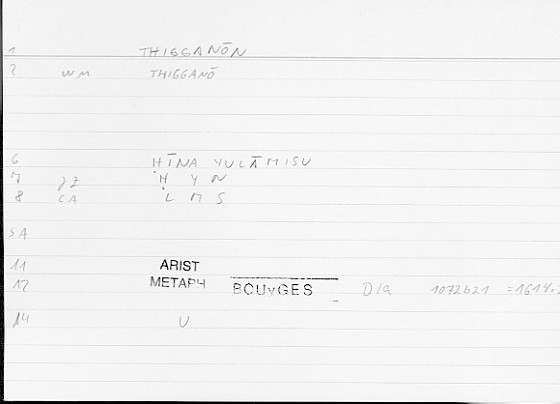 1 THIGGANŌN
2 WM THIGGANŌ
6 ḤĪNA YULĀMISU
7 JZ Ḥ Y N
8 CA L M S
SA
11 ARIST
12 METAPH BOUyGES Λ 1072b21 =1614.
14 U